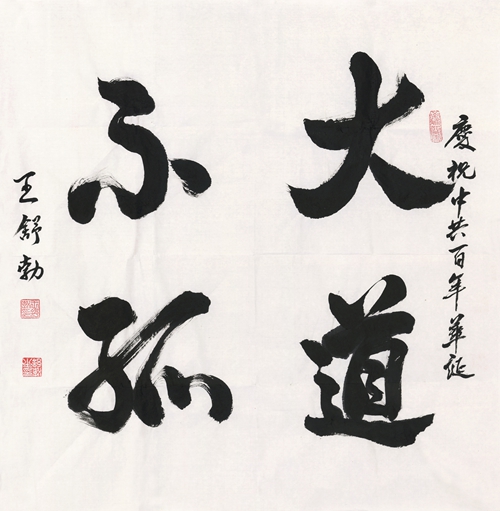 慶祝中共百年華诞
大道
不孤
王舒勃